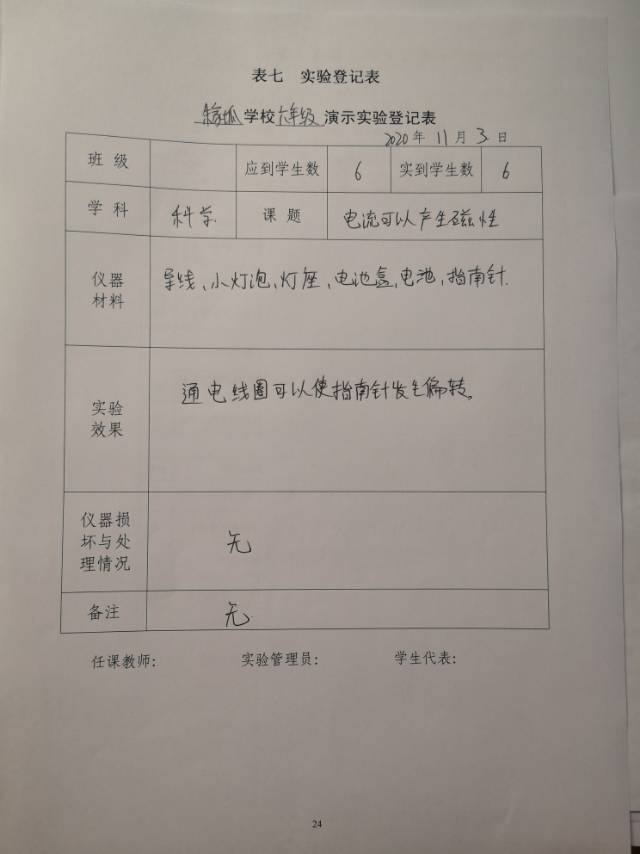 表七 实验登记表
学校六年级演示实验登记表
2020年11月3日
班级 应到学生数 6 实到学生数 6
学科 科学 课题 电流可以产生磁性
仪器材料 导线、小灯泡、灯座、电池盒,电池,指南针.
实验效果 通电线圈可以使指南针发生偏转。
仪器损坏与处理情况 无
备注 无
任课教师: 实验管理员: 学生代表:
24